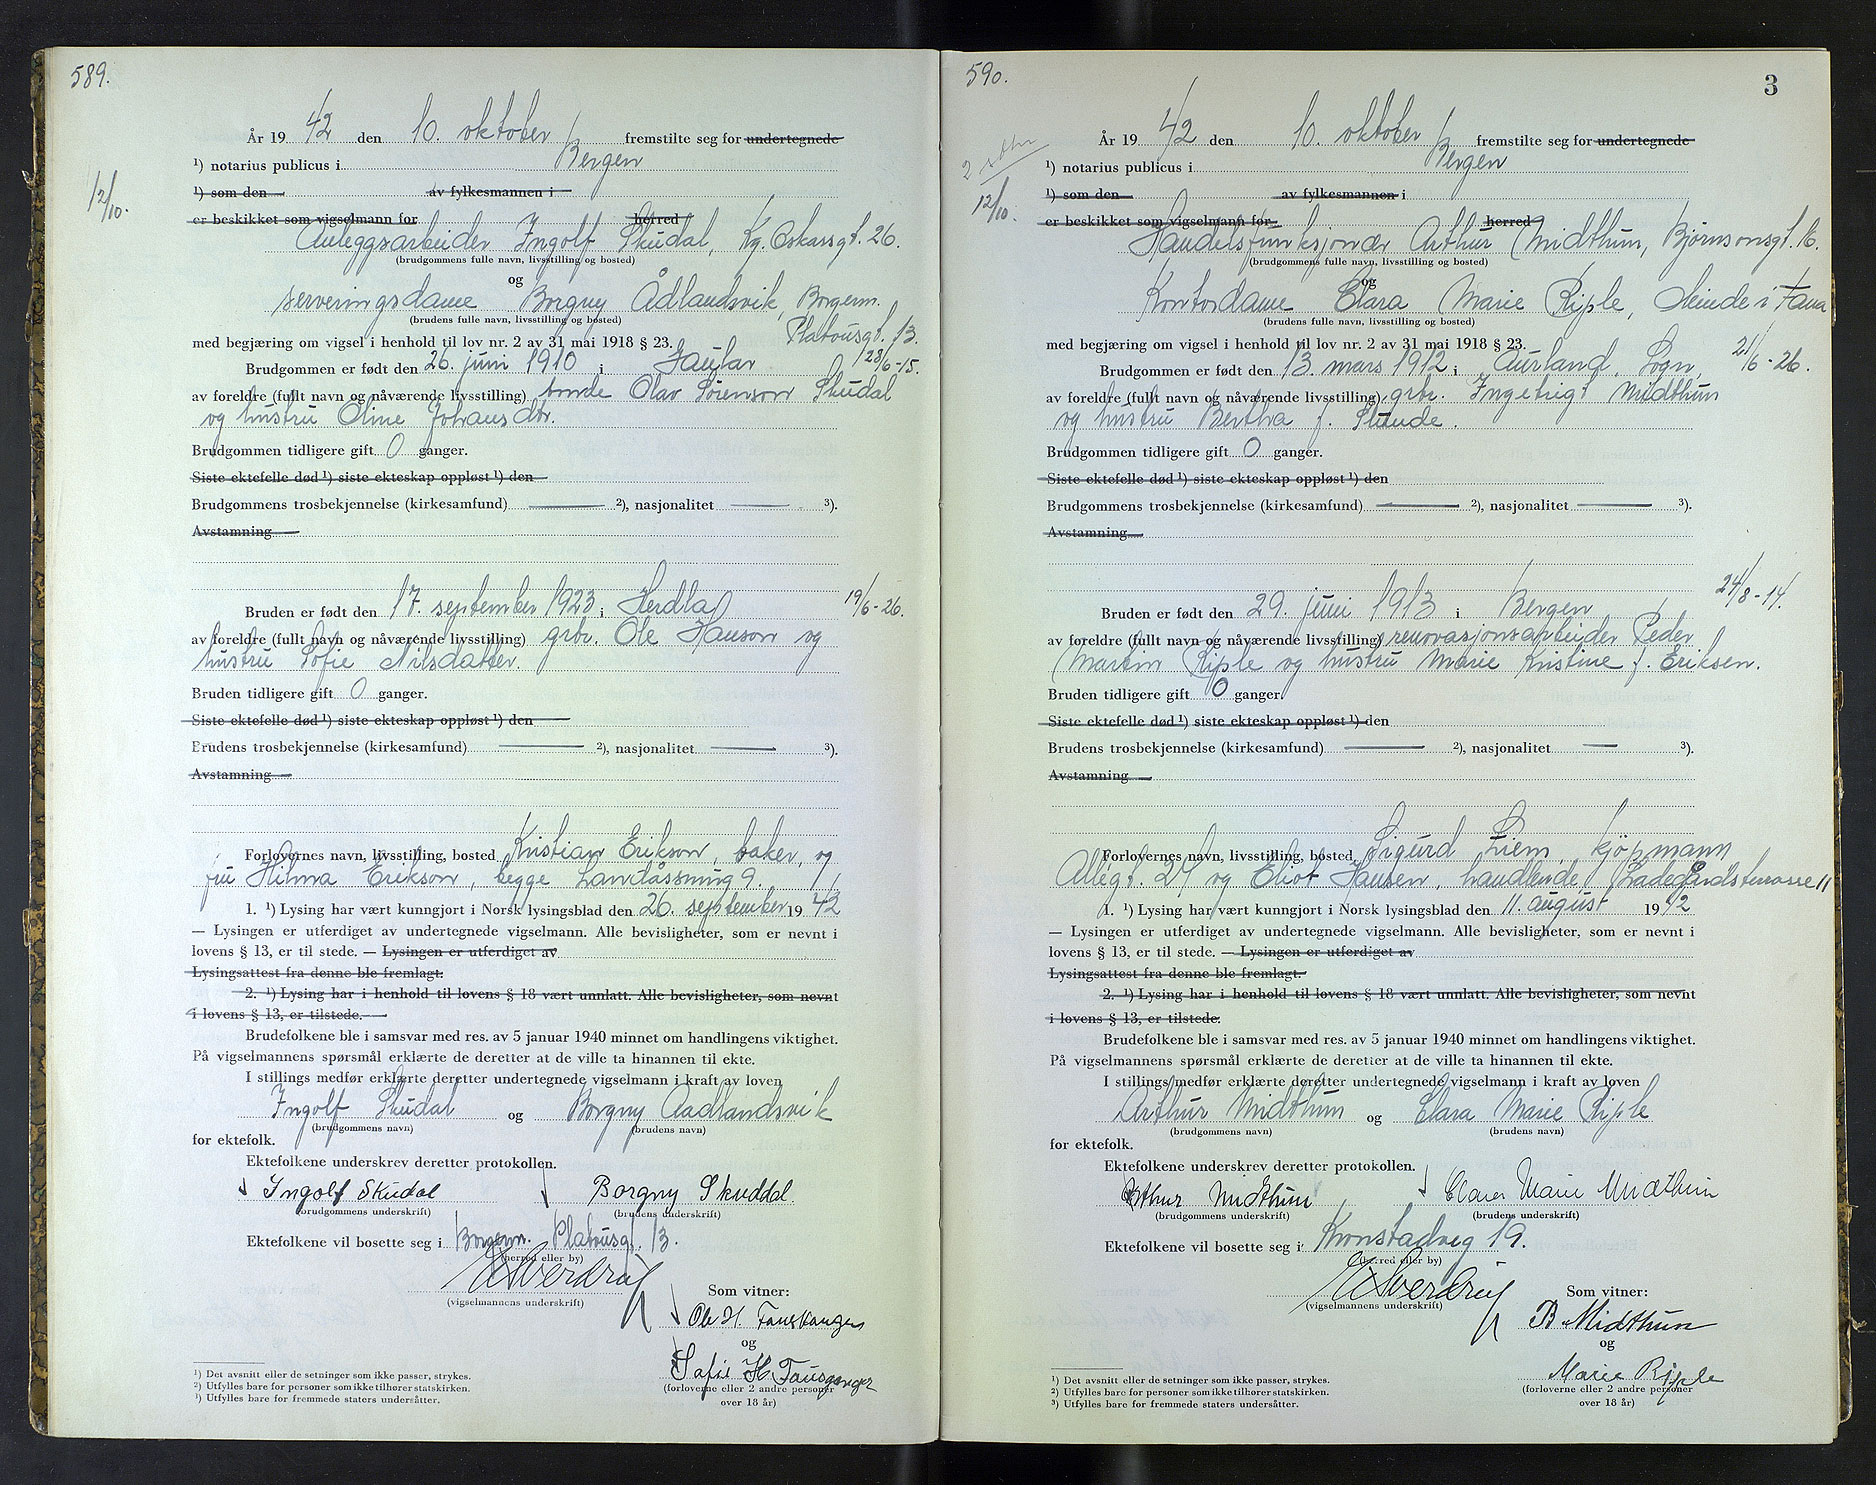 589.
År 19 42 den 10. oktober fremstilte seg for undertegnede
¹) notarius publicus i Bergen
12/10.
¹) som den av fylkesmannen i
er beskikket som vigselmann for herred
Anleggsarbeider Ingolf Skudal, Kg. Oskarsgt. 26.
(brudgommens fulle navn, livsstilling og bosted)
og
serveringsdame Borgny Ådlandsvik, Borgerm.
(brudens fulle navn, livsstilling og bosted)
Platousgt. 13.
med begjæring om vigsel i henhold til lov nr. 2 av 31 mai 1918 § 23.
Brudgommen er født den 26. juni 1910 i Gaular 28/6-15.
av foreldre (fullt navn og nåværende livsstilling) bonde Olav Sørenson Skudal
og hustru Oline Johansdtr.
Brudgommen tidligere gift 0 ganger.
Siste ektefelle død ¹) siste ekteskap oppløst ¹) den
Brudgommens trosbekjennelse (kirkesamfund) ²), nasjonalitet ³).
Avstamning
Bruden er født den 17. september 1923 i Herdla 19/6-26.
av foreldre (fullt navn og nåværende livsstilling) grbr. Ole Hanson og
hustru Sofie Nilsdatter.
Bruden tidligere gift 0 ganger.
Siste ektefelle død ¹) siste ekteskap oppløst ¹) den
Brudens trosbekjennelse (kirkesamfund) ²), nasjonalitet ³).
Avstamning
Forlovernes navn, livsstilling, bosted Kristian Erikson, baker, og
fru Hilma Erikson, begge Landåssmug 9.
1. ¹) Lysing har vært kunngjort i Norsk lysingsblad den 26. september 19 42
— Lysingen er utferdiget av undertegnede vigselmann. Alle bevisligheter, som er nevnt i
lovens § 13, er til stede. — Lysingen er utferdiget av
Lysingsattest fra denne ble fremlagt.
2. ¹) Lysing har i henhold til lovens § 18 vært unnlatt. Alle bevisligheter, som nevnt
i lovens § 13, er tilstede.
Brudefolkene ble i samsvar med res. av 5 januar 1940 minnet om handlingens viktighet.
På vigselmannens spørsmål erklærte de deretter at de ville ta hinannen til ekte.
I stillings medfør erklærte deretter undertegnede vigselmann i kraft av loven
Ingolf Skudal og Borgny Aadlandsvik
(brudgommens navn) (brudens navn)
for ektefolk.
Ektefolkene underskrev deretter protokollen.
Ingolf Skudal Borgny Skuddal
(brudgommens underskrift) (brudens underskrift)
Ektefolkene vil bosette seg i Borgerm. Platousgt. 13.
(herred eller by)
(vigselmannens underskrift)
Som vitner:
Ole H.
og
Sofie H
(forloverne eller 2 andre personer
over 18 år)
¹) Det avsnitt eller de setninger som ikke passer, strykes.
²) Utfylles bare for personer som ikke tilhører statskirken.
¹) Utfylles bare for fremmede staters undersåtter.
590.
3
År 19 42 den 10. oktober fremstilte seg for undertegnede
¹) notarius publicus i Bergen
12/10.
¹) som den av fylkesmannen i
er beskikket som vigselmann for herred
Handelsfunksjonær Arthur Midthun, Bjørnsonsgt. 16.
(brudgommens fulle navn, livsstilling og bosted)
og
Kontordame Clara Marie Riple, Minde i Fana
(brudens fulle navn, livsstilling og bosted)
med begjæring om vigsel i henhold til lov nr. 2 av 31 mai 1918 § 23.
Brudgommen er født den 13. mars 1912 i Aurland, Sogn, 21/6-26.
av foreldre (fullt navn og nåværende livsstilling) grbr. Ingebrigt Midthun
og hustru Bertha f. Stunde.
Brudgommen tidligere gift 0 ganger.
Siste ektefelle død ¹) siste ekteskap oppløst ¹) den
Brudgommens trosbekjennelse (kirkesamfund) ²), nasjonalitet ³).
Avstamning
Bruden er født den 29. juni 1913 i Bergen 24/8-14.
av foreldre (fullt navn og nåværende livsstilling) renovasjonsarbeider Peder
Martin Riple og hustru Marie Kristine f. Eriksen.
Bruden tidligere gift 0 ganger.
Siste ektefelle død ¹) siste ekteskap oppløst ¹) den
Brudens trosbekjennelse (kirkesamfund) ²), nasjonalitet ³).
Avstamning
Forlovernes navn, livsstilling, bosted Sigurd Liem, kjøpmann
Allégt. 27 og Eliot Hansen, handlende, Ladegårdsterrasse 11
1. ¹) Lysing har vært kunngjort i Norsk lysingsblad den 11. august 19 42
— Lysingen er utferdiget av undertegnede vigselmann. Alle bevisligheter, som er nevnt i
lovens § 13, er til stede. — Lysingen er utferdiget av
Lysingsattest fra denne ble fremlagt.
2. ¹) Lysing har i henhold til lovens § 18 vært unnlatt. Alle bevisligheter, som nevnt
i lovens § 13, er tilstede.
Brudefolkene ble i samsvar med res. av 5 januar 1940 minnet om handlingens viktighet.
På vigselmannens spørsmål erklærte de deretter at de ville ta hinannen til ekte.
I stillings medfør erklærte deretter undertegnede vigselmann i kraft av loven
Arthur Midthun og Clara Marie Riple
(brudgommens navn) (brudens navn)
for ektefolk.
Ektefolkene underskrev deretter protokollen.
Arthur Midthun Clara Marie Midthun
(brudgommens underskrift) (brudens underskrift)
Ektefolkene vil bosette seg i Kronstadveg 19.
(herred eller by)
(vigselmannens underskrift)
Som vitner:
B Midthun
og
Marie Riple
(forloverne eller 2 andre personer
over 18 år)
¹) Det avsnitt eller de setninger som ikke passer, strykes.
²) Utfylles bare for personer som ikke tilhører statskirken.
³) Utfylles bare for fremmede staters undersåtter.